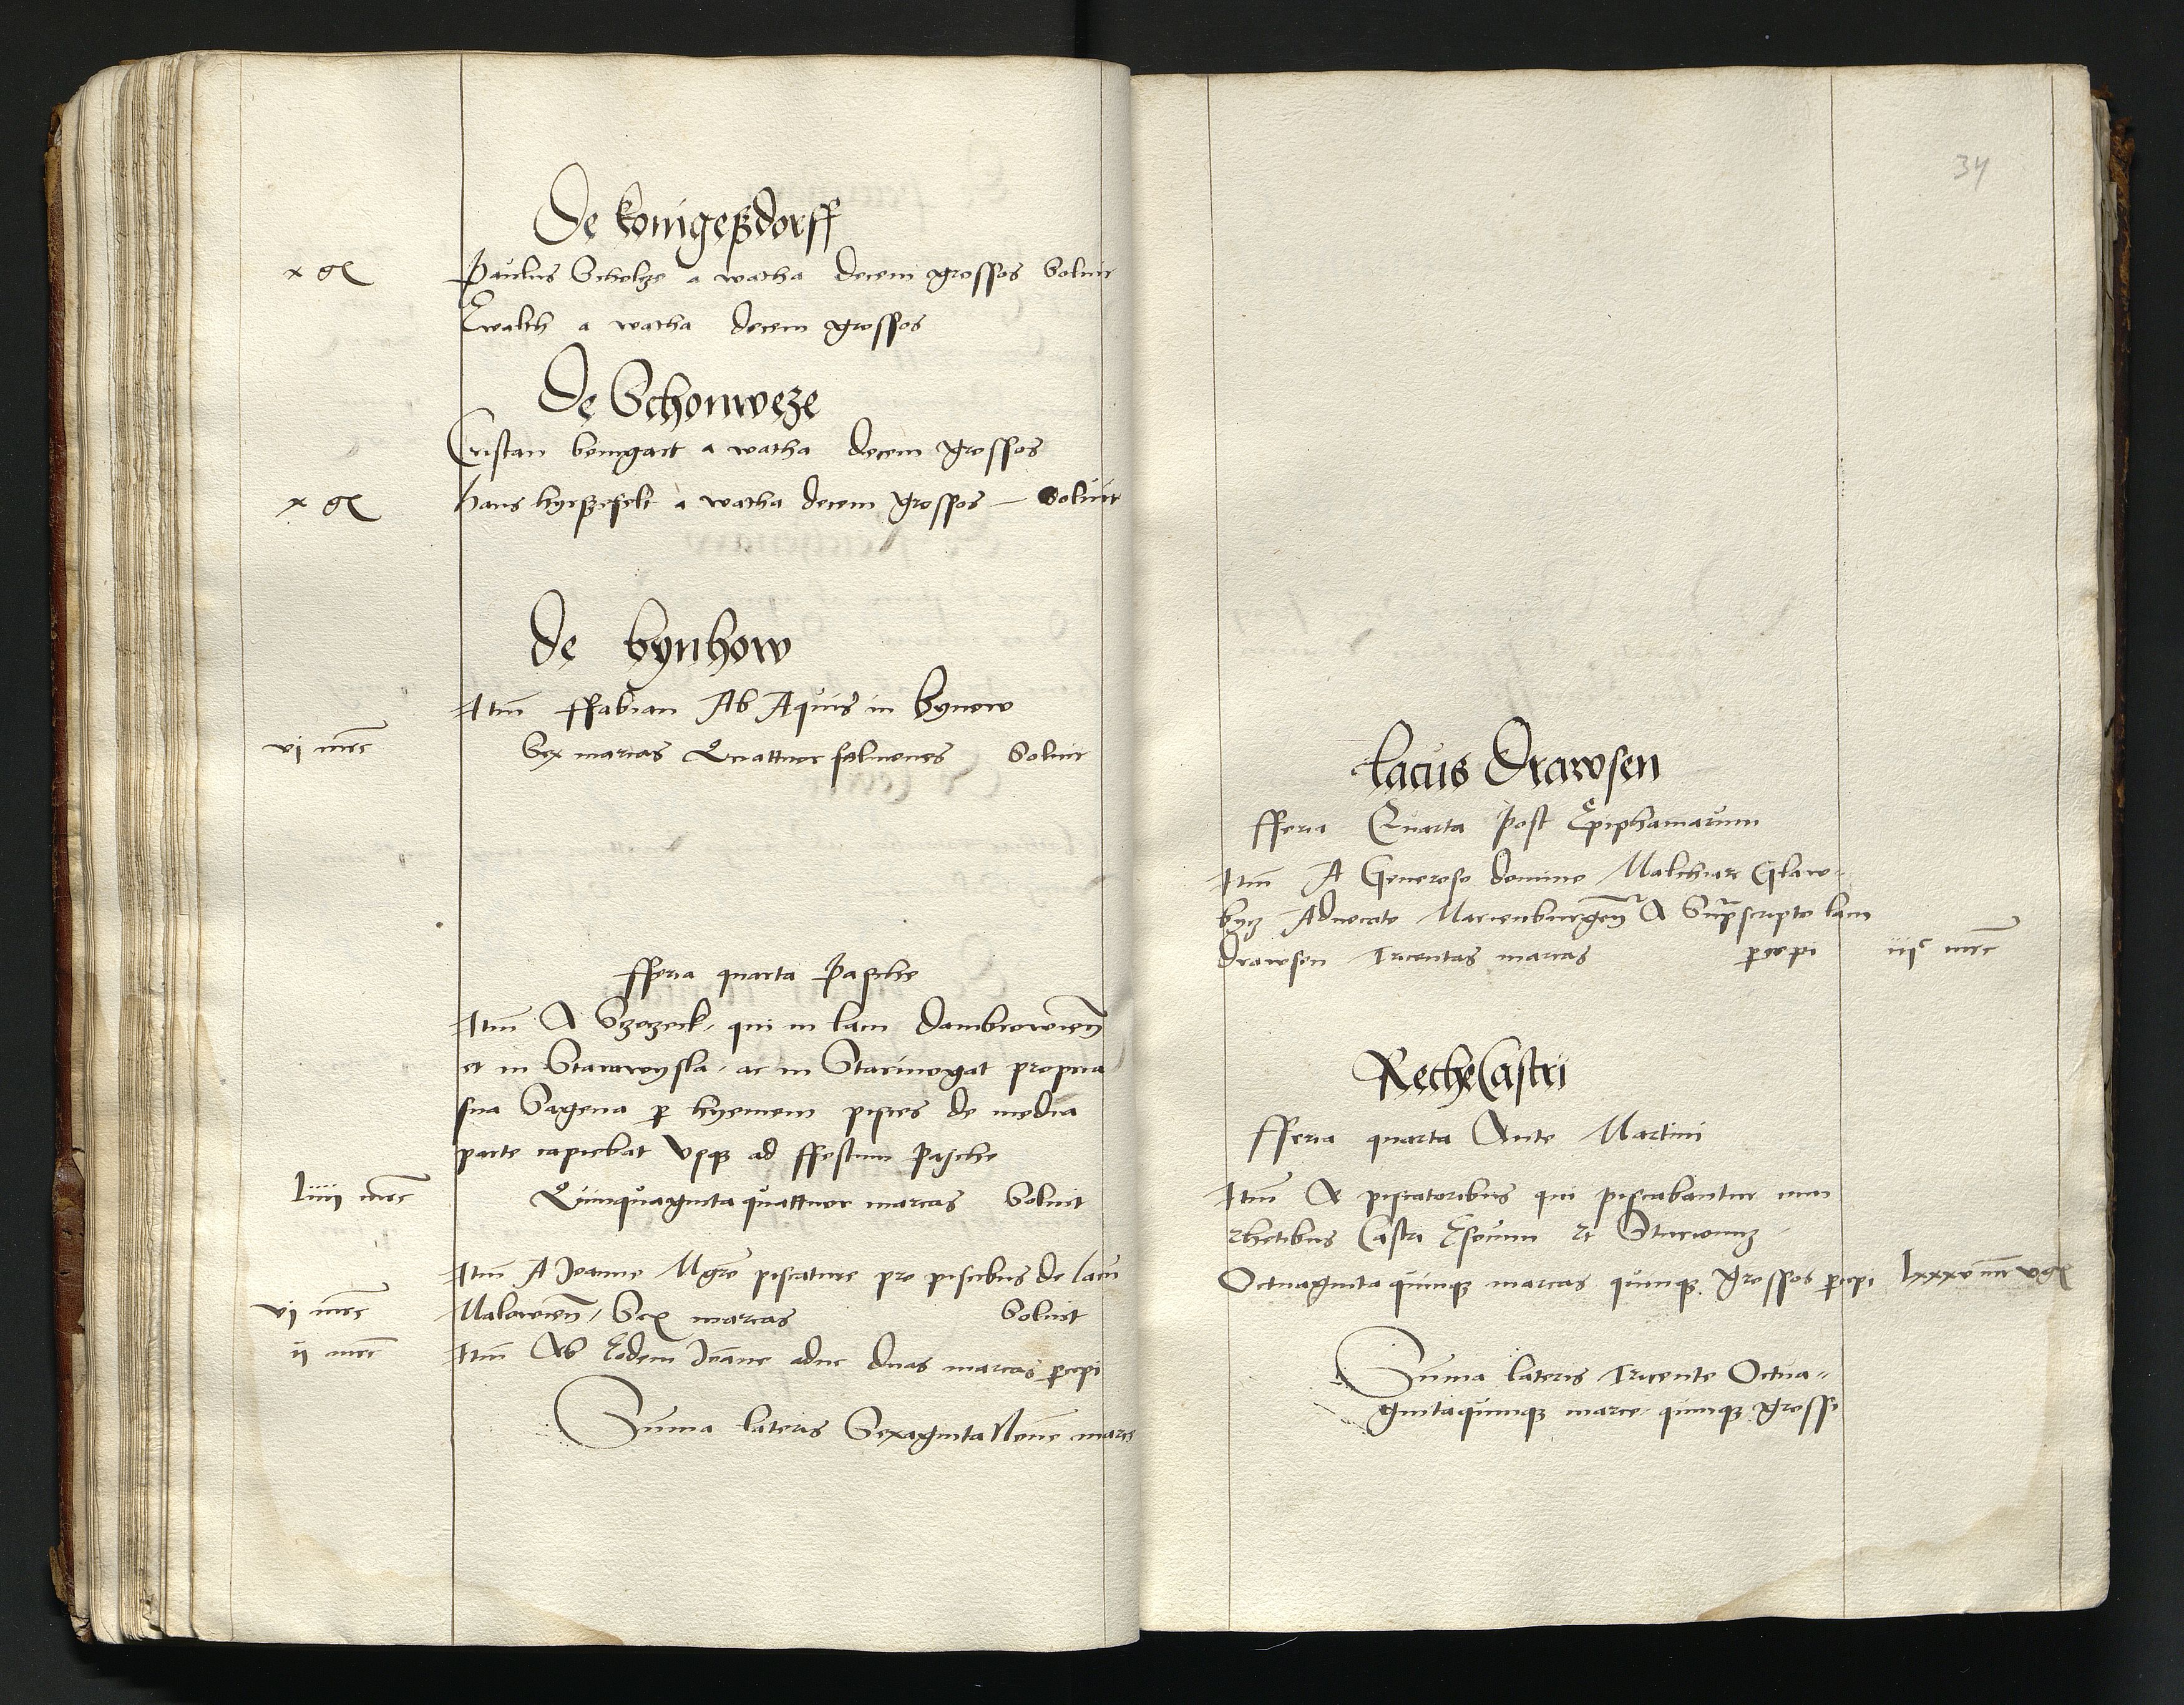 De konigeßdorff
x gr Paulus Scholze a watha decem grossos Soluit
Ewalth a watha decem grossos
De Schonweze
Cristan bemgart a watha decem grossos
x gr hans hyrßefelt a watha decem grossos – Soluit
De bynhow
Itm ffabian Ab Aquis in bynow
vi mrc Sex marcas Quattuor salmones Soluit
fferia quarta Pasche
Itm A Szozeck, qui in lacu dambrowien
et in Starawysla, ac in Starinogat propria
sua Sagena p hyemem pisces de media
parte capiebat vsq ad ffestum Pasche
liiii mrc Quinquaginta quattuor marcas Soluit
Itm A Joanne Mgro piscature pro piscibus de lacu
vi mrc Malowien, Sex marcas Soluit
ii mrc Itm Ab Eodem Joanne adhuc duas marcas pcepi
Suma lateris Sexaginta Noue marce
34
lacus Drawsen
fferia Quarta Post Epiphaniarum
Itm A Generoso domino Malchiar Glaw-
bycz Aduocato Marienburgen A Suprascripto lacu
Drawsen Tricentas marcas pcepi iiiᶜ mrc
Rethe Castri
fferia quarta Ante Martini
Itm A piscatoribus qui piscabantur cum
rhetibus Castri Esoxum et Sturionum
Octuaginta quinq marcas quinq grossos pcepi lxxxv mr v gr
Suma lateris Tricente Octua-
gintaquinq marce quinq grossi